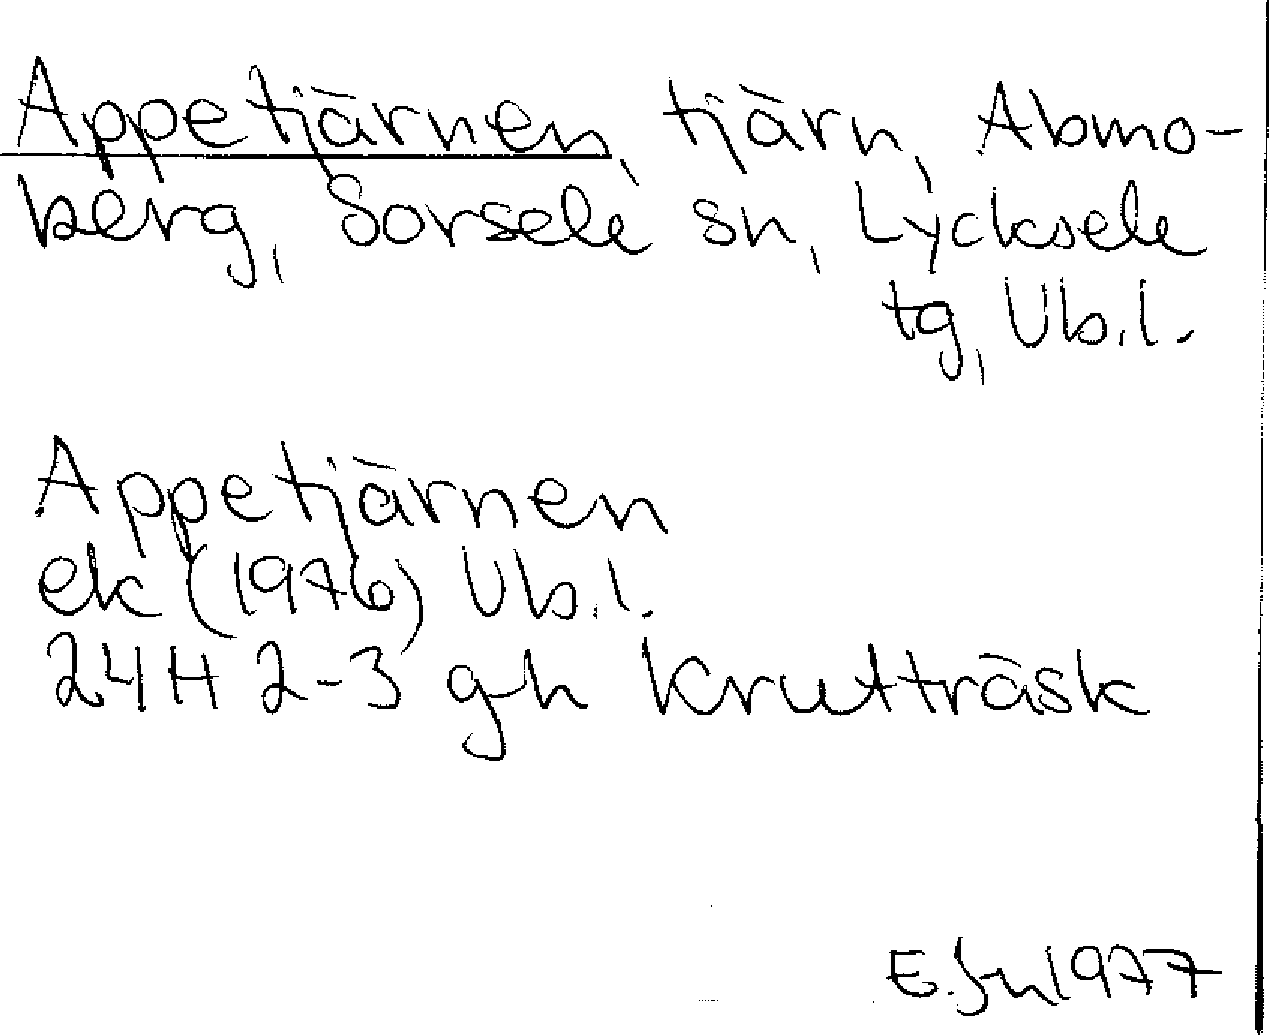 Appetjärnen, tjärn, Abmo-
berg, Sorsele sn, Lycksele
tg, Vb.l.
Appetjärnen
ek (1976) Vb.l.
24H 2-3 g-h Kruttträsk
E. 1977